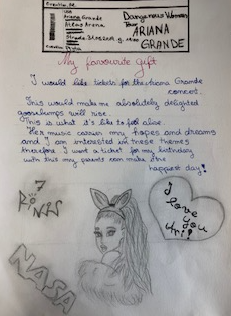 Ariana Grande
Arena
Dangerous Woman
Tour
ARIANA
GRANDE
My favourite Gift
I would like tickets for the Ariana Grande
concert.
This would make me absolutely delighted
goosbumps will rise
This is what it's like to feel alive.
Her music carries my hopes and dreams
and I am interested in these themes
therefore I want a ticket for my birthday
with this my parents can make the
happiest day!
7
RINGS
I
love
you
Ari!
NASA